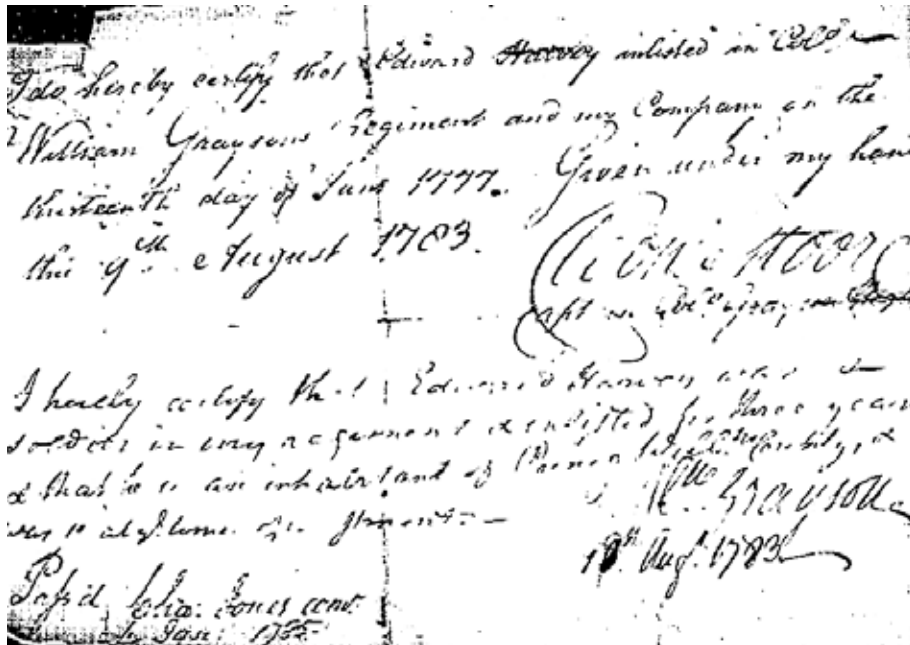 I do hereby certify that Edward Harvey inlisted in Coll.
William Graysons Regiment and my Company on the
thirteenth day of June 1777. Given under my hand
this 9th August 1783.
Cleon Moore
Capt in
I hereby certify that Edward Harvey was a
soldier in my regiment & enlisted for three years
& that he is an inhabitant of Prince William County, &
was so at the time
Wm. Grayson
Augt. 1783
Pass'd Cha: Jones
Jan: 1785